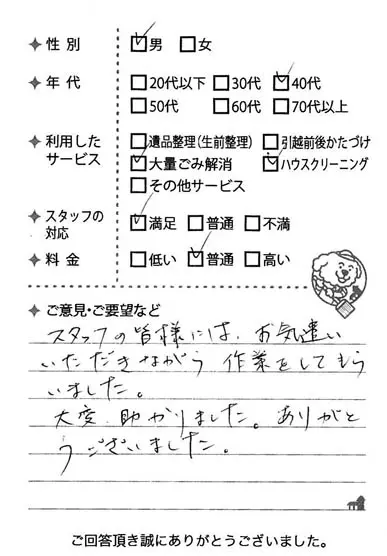 性別 男 女
年代 20代以下 30代 40代
50代 60代 70代以上
利用したサービス 遺品整理(生前整理) 引越前後かたづけ
大量ごみ解消 ハウスクリーニング
その他サービス
スタッフの対応 満足 普通 不満
料金 低い 普通 高い
ご意見・ご要望など
スタッフの皆様には、お気遣い
いただきながら 作業をしてもら
いました。
大変、助かりました。ありがと
うございました。
ご回答頂き誠にありがとうございました。